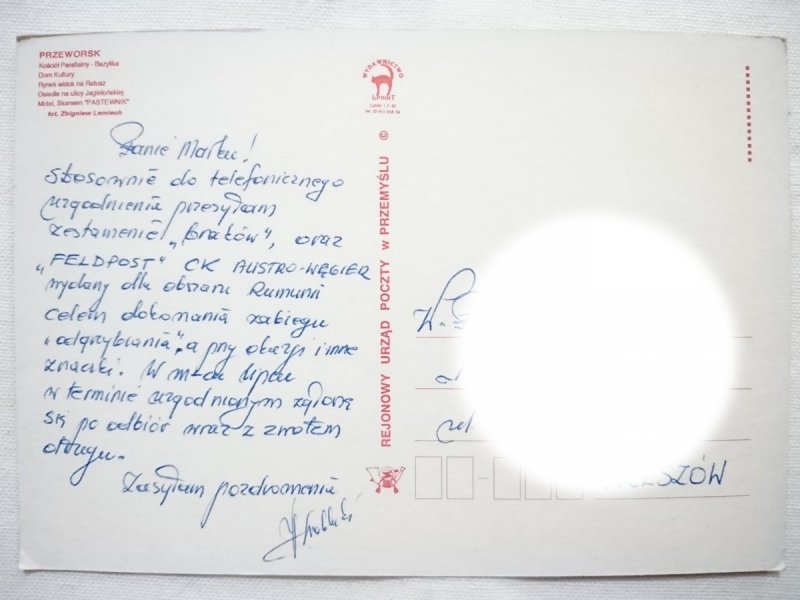 PRZEWORSK
Kościół Parafialny - Bazylika
Dom Kultury
Rynek widok na Ratusz
Osiedle na ulicy Jagiellońskiej
Motel, Skansen "PASTEWNIK"
fot. Zbigniew Lemiech
WYDAWNICTWO
REJONOWY URZĄD POCZTY w PRZEMYŚLU ©
Panie Marku!
Stosownie do telefonicznego
uzgodnienia przesyłam
zestawienie „braków", oraz
„FELDPOST" CK AUSTRO-WĘGIER
wydany dla obszaru Rumunii
celem dokonania zabiegu
„odgrzybiania", a przy okazji inne
znaczki. W m-cu lipcu
w terminie uzgodnionym zgłoszę
się po odbiór wraz z zwrotem
długu.
Zasyłam pozdrowienia
W.
ul.